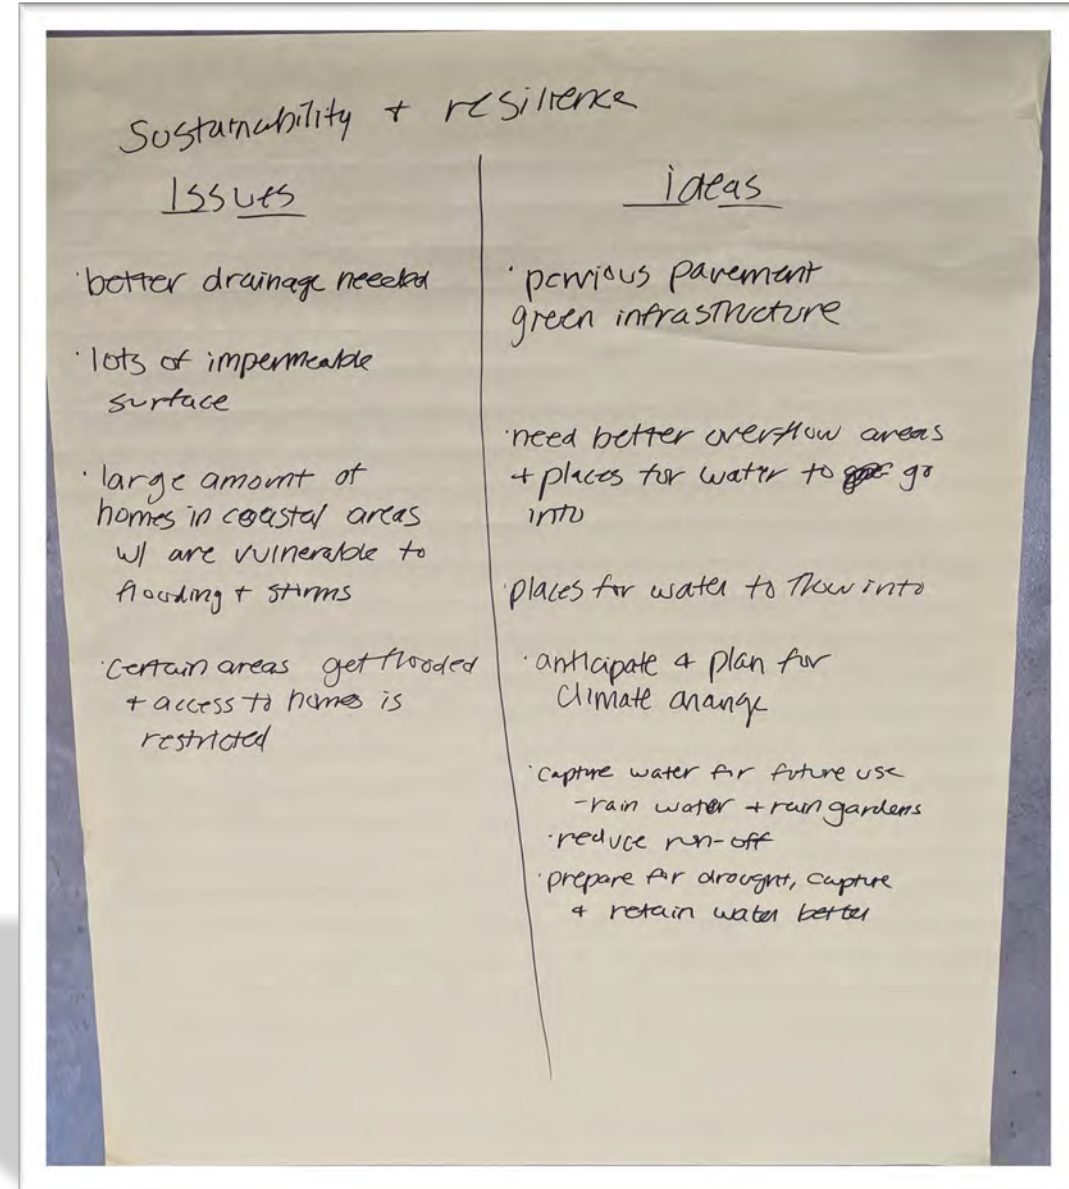 Sustainability + resilience
Issues
· better drainage needed
· lots of impermeable
surface
· large amount of
homes in coastal areas
w/ are vulnerable to
flooding + storms
· certain areas get flooded
+ access to homes is
restricted
ideas
· pervious pavement
green infrastructure
· need better overflow areas
+ places for water to go
into
· places for water to flow into
· anticipate + plan for
climate change
· capture water for future use
- rain water + rain gardens
· reduce run-off
· prepare for drought, capture
+ retain water better